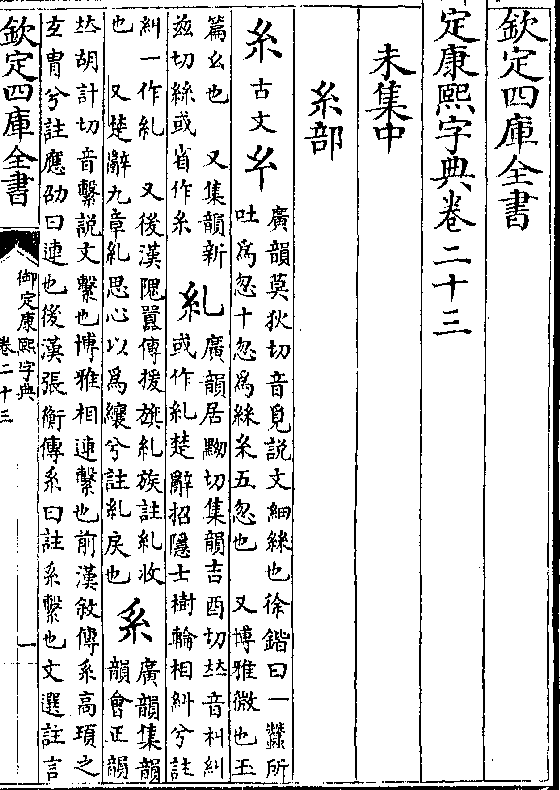 欽定四庫全書
定康熙字典卷二十三
未集中
糸部
糸 古文 𢆯
廣韻莫狄切音覓説文細絲也徐鍇曰一蠶所
吐爲忽十忽爲絲糸五忽也 又博雅微也玉
篇幺也 又集韻新
兹切絲或省作糸
糺
廣韻居黝切集韻吉酉切𠀤音糾糾
或作糺楚辭招隱士樹輪相糾兮註
糾一作糺 又後漢隗囂傳援旗糺族註糺收
也 又楚辭九章糺思心以爲纕兮註糺戾也
系
廣韻集韻
韻會正韻
𠀤胡計切音繫説文繫也博雅相連繫也前漢敘傳系高頊之
玄冑兮註應劭曰連也後漢張衡傳系曰註系繫也文選註言
欽定四庫全書
御定康熙字典
卷二十三
一